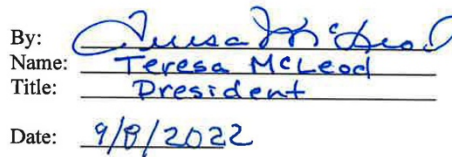 By: Teresa McLeod
Name: Teresa McLeod
Title: President
Date: 9/8/2022